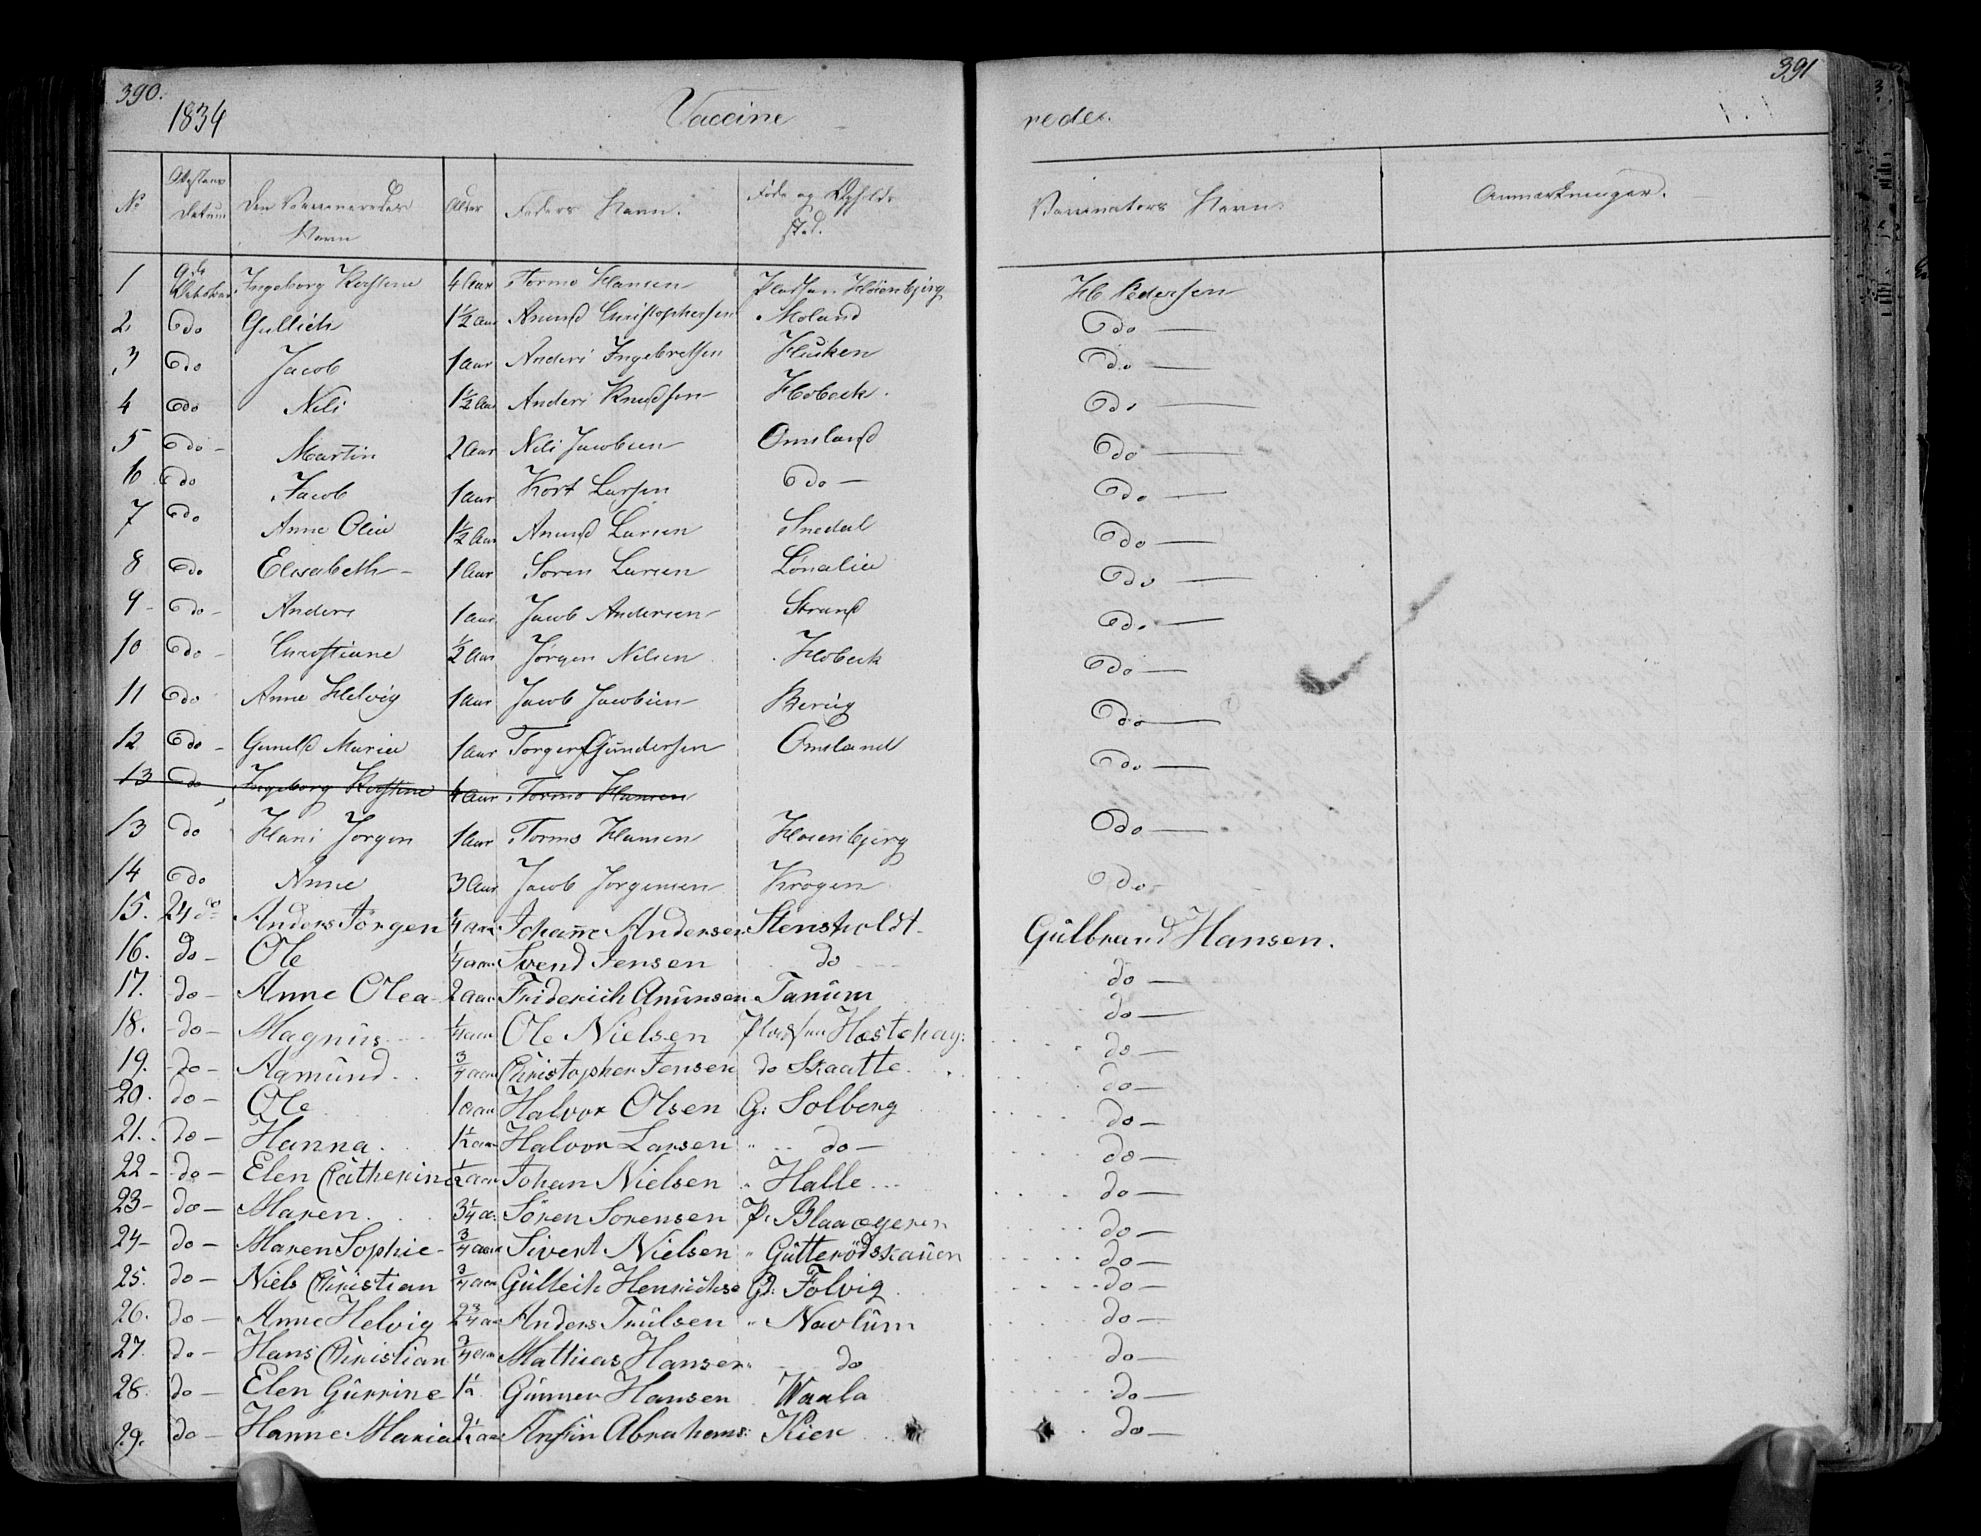 390.
1834 Vaccine
No Attestens Datum Den Vaccineredes Navn Alder Faders Navn. Føde og Opholds sted.
1 9de October Ingeborg Kirstine 4 Aar Tormo Hansen Pladsen Höienbjerg
2 do Gullich 1½ Aar Amund Christophersen Moland
3 do Jacob 1 Aar Anders Ingebretsen Husken
4 do Nils 1½ Aar Anders Knudsen Hobeck.
5 do - Martin 2 Aar Nils Jacobsen Omland
6 do Jacob 1 Aar Kort Larsen do —
7 do Anne Olea 1½ Aar Amund Larsen Snedal
8 do Elisabeth - 1 Aar Sören Larsen Lönalia
9 - do - Anders 1 Aar Jacob Andersen Strand
10 do - Christiane ½ Aar Jørgen Nilsen Hobeck
11 do Anne Helvig 1 Aar Jacob Jacobsen Berüg
12 do - Gunild Maria 1 Aar Torger Gundersen Omland
13 do Ingeborg Kirstine 4 Aar Tormo Hansen
13 do Hans Jørgen 1 Aar Tormo Hansen Hoienbjerg
14 do Anne 3 Aar Jacob Jørgensen Krogen
15. 24 do Anders Jörgen ¼ aar Johanne Andersen Stensholdt
16. do - Ole ¼ aar Svend Jensen do
17. do - Anne Olea 2 aar Friderich Amunsen Tanum
18. do - Magnus ¼ aar Ole Nielsen Pladsen Hestehag:
19. do - Aamund ¾ aar Christopher Jensen do Skaatte.
20. do - Ole 1 aar Halvor Olsen G: Solberg
21. do - Hanna. 1½ aar Halvor Larsen " do —
22 - do - Elen Catherine ½ aar Johan Nielsen " Halle
23 - do - Maren. 3¼ a: Sören Sorensen P: Blaaogeren
24 - do - Maren Sophie - ¾ aar Sivert Nielsen " Gutterödskauen
25. do - Niels Christian ¾ aar Gulleik Henrichse Gd: Folvig
26. do - Anne Helvig 2¾ aar Anders Trulsen " Navlum
27. do - Hans Christian ¾ aar Mathias Hansen do
28. do - Elen Gurrine 1½ Gunner Hansen Waala
29. do - Hanne Maria 2½ aar Anfin Abrahams: Kier
391
reder.
Vaccinators Navn. Anmærkninger.
H Pedersen
do —
do —
do —
do —
do —
do —
do —
do —
do —
do —
do —
do —
do
Gulbrand Hansen.
do —
do —
do —
do —
do —
do —
do —
do —
do —
do —
do —
do —
do —
do —